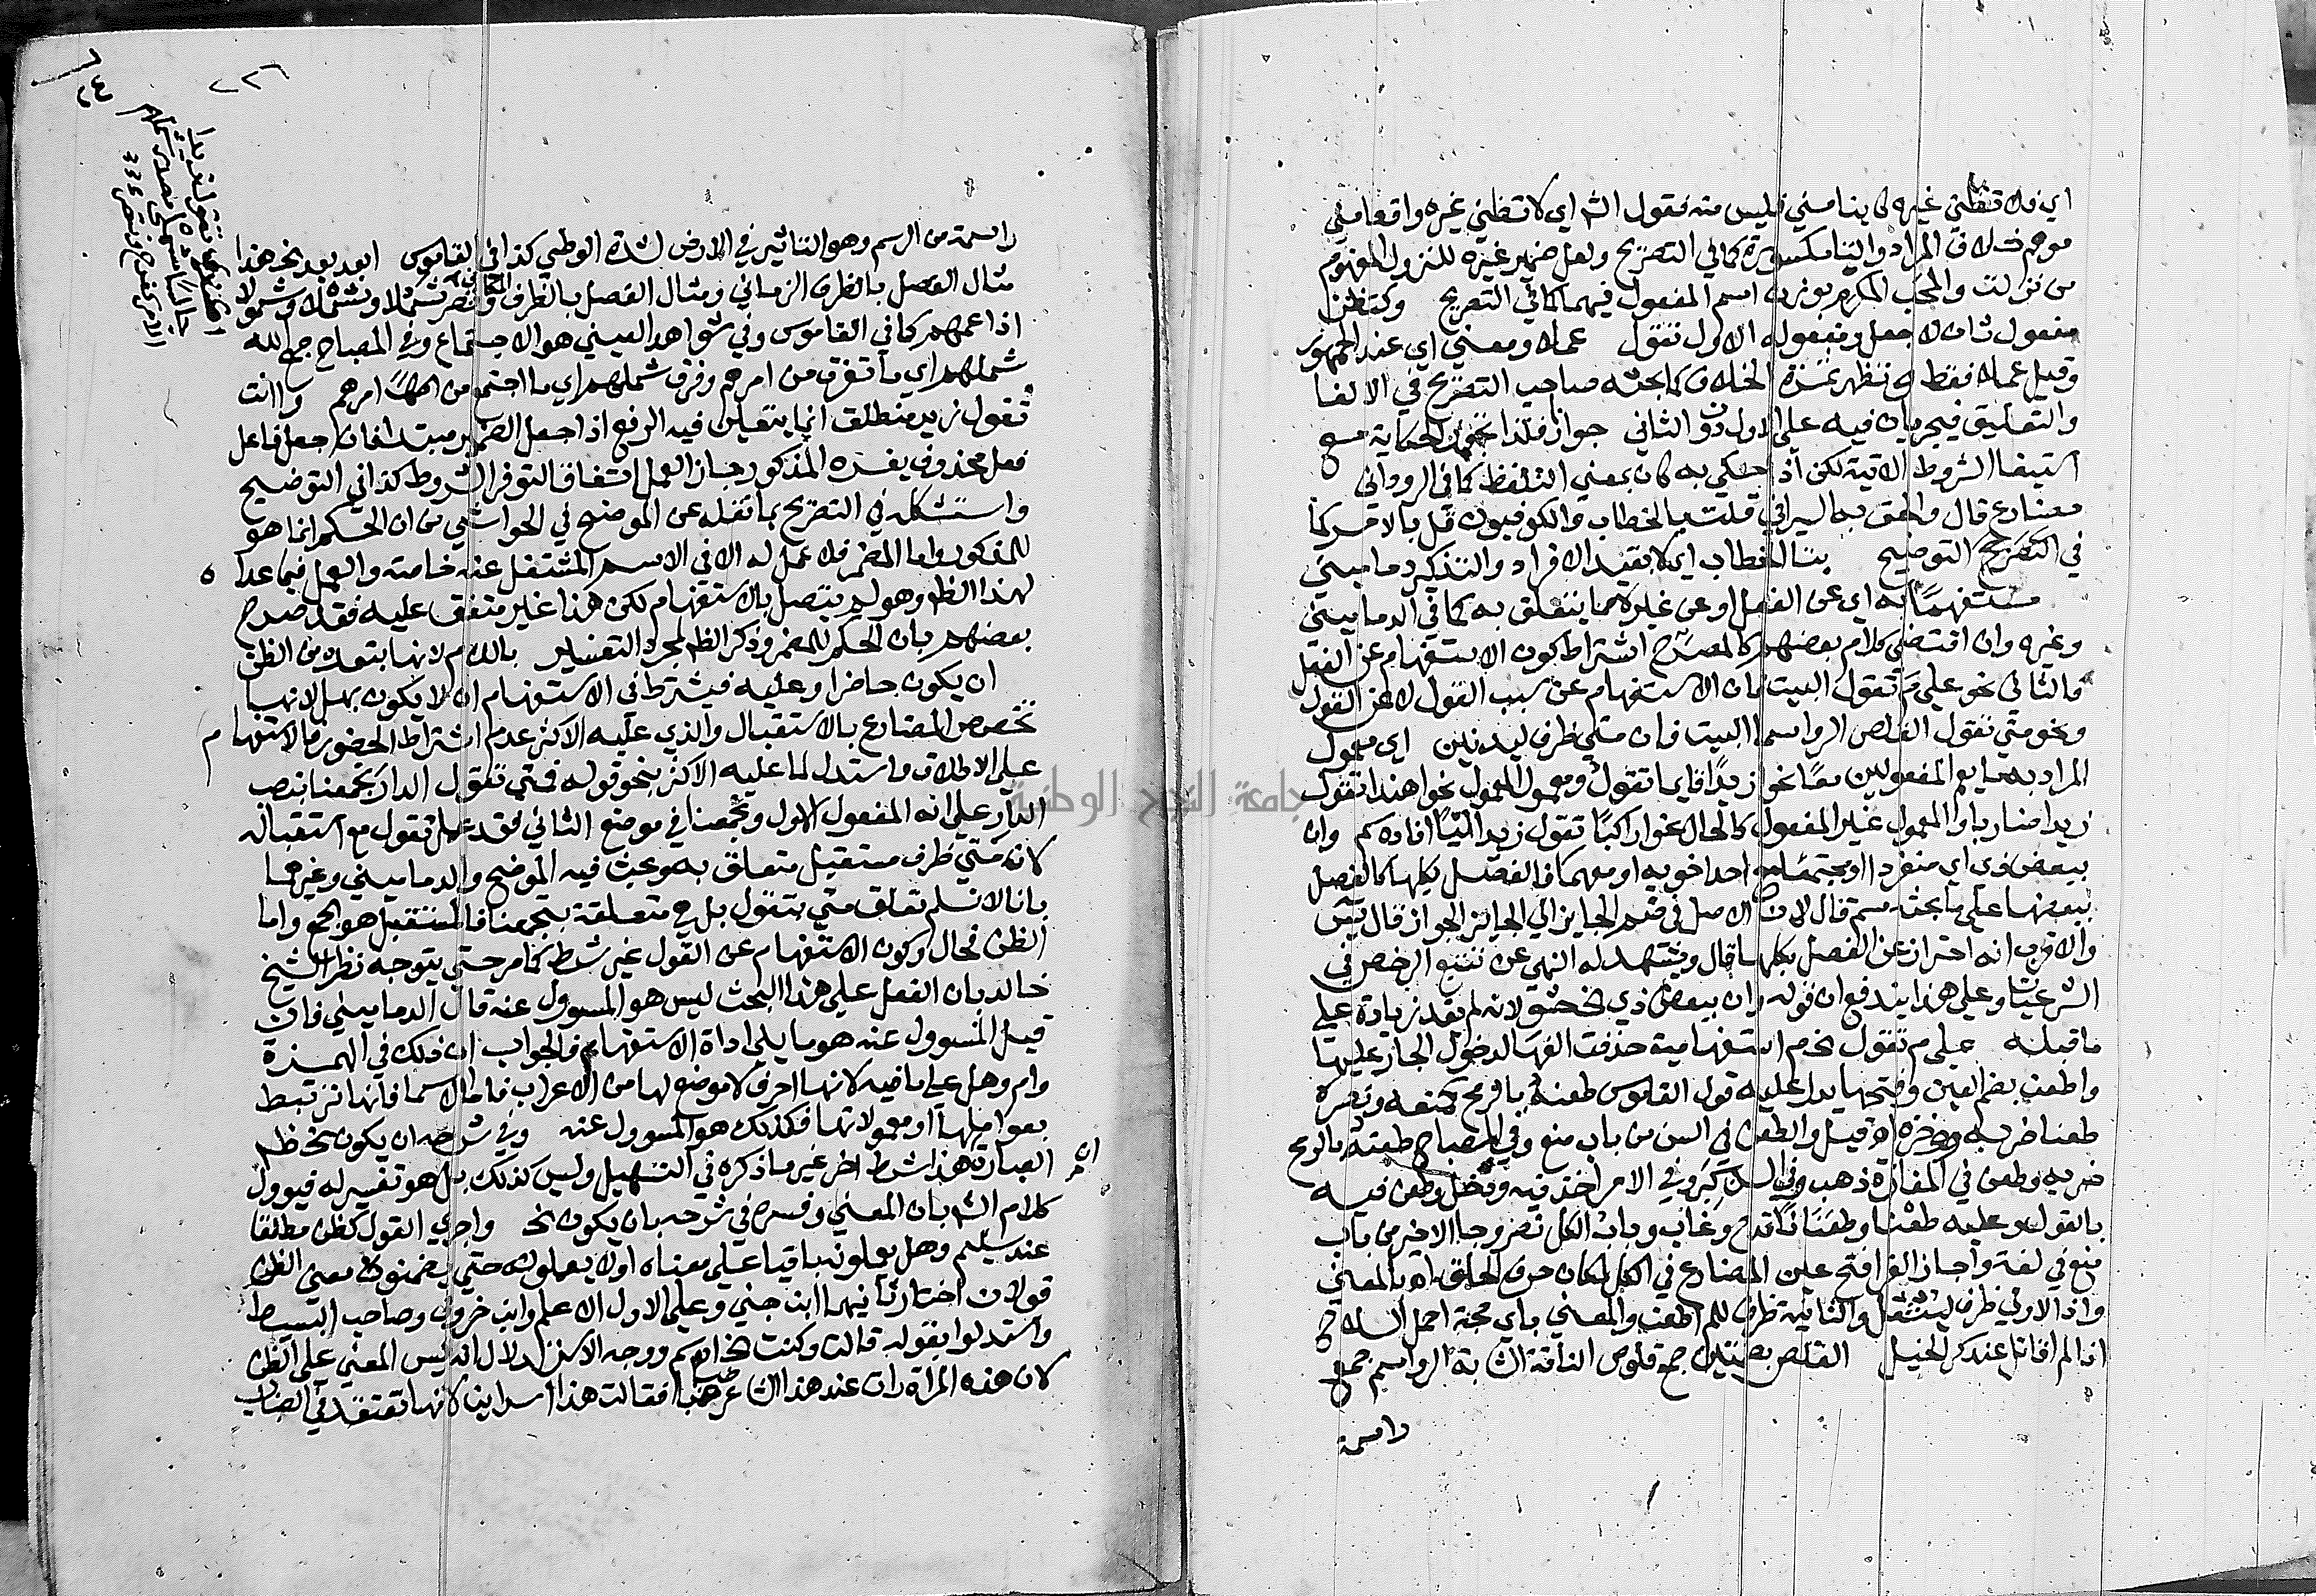 اي فلا تظني غيره كاينا مني فليس منه فقول الش اي لا تظني غيره واقعا مني
موهم خلاف المراد والتا مكسورة كما في التصريح ولعل ضمير غيره للنزول المفهوم
من نزلت والمحب المكرم بوزن اسم المفعول فيهما كما في التصريح وكتظن
مفعول ثان لاجعل ومفعوله الاول تقول عملا ومعني اي عند الجمهور
وقيل عملا فقط وتظهر ثمرة الخلاف كما بحثه صاحب التصريح في الالغا
والتعليق فيجريان فيه علي الاول دون الثاني جوازا فلذا تجوز الحكاية مع
استيفا الشروط الاتية لكن اذا حكي به كان بمعني التلفظ كما في الروداني
مضارع قال والحق به السيرافي قلت بالخطاب والكوفيون قل بالامر كما
في التصريح التوضيح بتا الخطاب اي لا بقيد الافراد والتذكير دماميني
مستفهما به اي عن الفعل او عن غيره مما يتعلق به كما في الدماميني
وغيره وان اقتضي كلام بعضهم كالمصرح اشتراط كون الاستفهام عن الفعل
فالثاني نحو علي م تقول البيت فان الاستفهام عن سبب القول لا عن القول
ونحو متي تقول القلص الرواسما البيت فان متي ظرف ليدنين اي معمول
المراد به ما يعم المفعولين معا نحو ازيدا قايما تقول ومعمول المعمول نحو اهندا تقول
زيدا ضاربا والمعمول غير المفعول كالحال نحو اراكبا تقول زيدا اتيا افاده سم وان
ببعض ذي اي منفردا او مجتمعا مع احد اخويه او معهما فالفصل بكلها كالفصل
ببعضها علي ما بحثه سم قال لان الاصل في ضم الجايز الي الجايز الجواز قال يس
والاقرب انه احتراز عن الفصل بكلها قال ويشهد له النهي عن تتبع الرخص في
الشرعيات وعلي هذا يندفع ان قوله وان ببعض ذي الخ حشو لانه لم يفد زيادة علي
ما قبله علي م تقول الخ م استفهامية حذفت الفها لدخول الجار عليها
واطعن بضم العين وفتحها يدل عليه قول القاموس طعنه بالرمح كمنعه ونصره
طعنا ضربه ووخزه اه قيل والطعن في السن من باب منع وفي المصباح طعنه بالرمح
ضربه وطعن في المفازة ذهب وفي السن كبر وفي الامر اخذ فيه ودخل وطعن فيه
بالقول وعليه طعنا وطعنانا قدح وعاب وباب الكل نصر وجا الاخير من باب
منع في لغة واجاز الفرا فتح عين المضارع في الكل لمكان حرف الحلق اه بالمعني
واذا الاولي ظرف ليثقل والثانية ظرف للم اطعن والمعني باي حجة احمل السلاح
اذا لم اقاتل عند كر الخيل القلص بضمتين جمع قلوص الناقة الشابة الرواسم جمع
راسمة
راسمة من الرسم وهو التاثير في الارض لشدة الوطي كذا في القاموس ابعد بعد الخ هذا
مثال الفصل بالظرف الزماني ومثال الفصل بالظرف المكاني
اذا عمهم كما في القاموس وفي شواهد العيني هو الاجتماع وفي المصباح جمع الله
شملهم اي ما تفرق من امرهم وفرق شملهم اي ما اجتمع من امرهم وا انت
تقول زيد منطلق انما يتعين فيه الرفع اذا جعل الضمير مبتدا فان جعل فاعل
فعل محذوف يفسره المذكور جاز العمل اتفاقا لتوفر الشروط كذا في التوضيح
واستشكله في التصريح بما نقله عن الموضح في الحواشي من ان الحكم انما هو
للمذكور واما المضمر فلا عمل له الا في الاسم المشتغل عنه خاصة والعمل فيما عداه
لهذا الظ وهو لم يتصل بالاستفهام لكن هذا غير متفق عليه فقد صرح
بعضهم بان الحكم للمضمر وذكر الظ لمجرد التفسير باللام لانها بتعد من الظن
ان يكون حاضرا وعليه فيشترط في الاستفهام ان لا يكون بهل لانها
تخصص المضارع بالاستقبال والذي عليه الاكثر عدم اشتراط الحضور فالاستفهام
علي الاطلاق واستدل لما عليه الاكثر بنحو قوله فمتي تقول الدار تجمعنا بنصب
الدار علي انه المفعول الاول وتجمعنا في موضع الثاني فقد عمل تقول مع استقباله
لان متي ظرف مستقبل متعلق به وبحث فيه الموضح والدماميني وغيرهما
بانا لا نسلم تعلق متي بتقول بل هي متعلقة بتجمعنا فالمستقبل هو الجمع واما
الظن فحال وكون الاستفهام عن القول غير شرط كما مر حتي يتوجه نظر الشيخ
خالد بان الفعل علي هذا البحث ليس هو المسوول عنه قال الدماميني فان
قيل المسوول عنه هو ما يلي اداة الاستفهام فالجواب ان ذلك في الهمزة
وام وهل علي ما فيه لانها احرف لا موضع لها من الاعراب فاما الاسما فانها ترتبط
بعواملها او معمولاتها فكذلك هو المسوول عنه وفي شرحه ان يكون الخ ظ
العبارة ان هذا شرط اخر غير ما ذكره في التسهيل وليس كذلك بل هو تفسير له فيوول
كلام الش بان المعني وفسره في شرحه بان يكون الخ واجري القول كظن مطلقا
عند سليم وهل يعملونه باقيا علي معناه او لا يعملونه حتي يضمنوه معني الظن
قولان اختار ثانيهما ابن جني وعلي الاول الاعلم وابن خروف وصاحب البسيط
واستدلوا بقوله قالت وكنت الخ ووجه الاستدلال انه ليس المعني علي الظن
لان هذه المراة رات عند هذا الشاعر ضبا فقالت هذا اسراين لانها تعتقد في الضباب